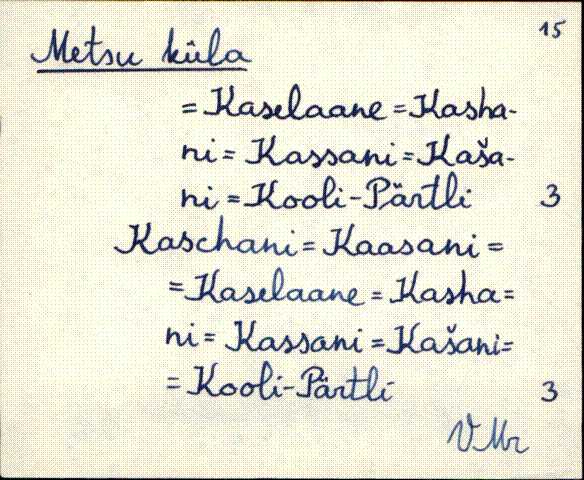 15
Metsu küla
= Kaselaane = Kasha-
ni = Kassani = Kaša-
ni = Kooli-Pärtli 3
Kaschani = Kaasani =
= Kaselaane = Kasha=
ni = Kassani = Kašani=
= Kooli-Pärtli 3
VMr